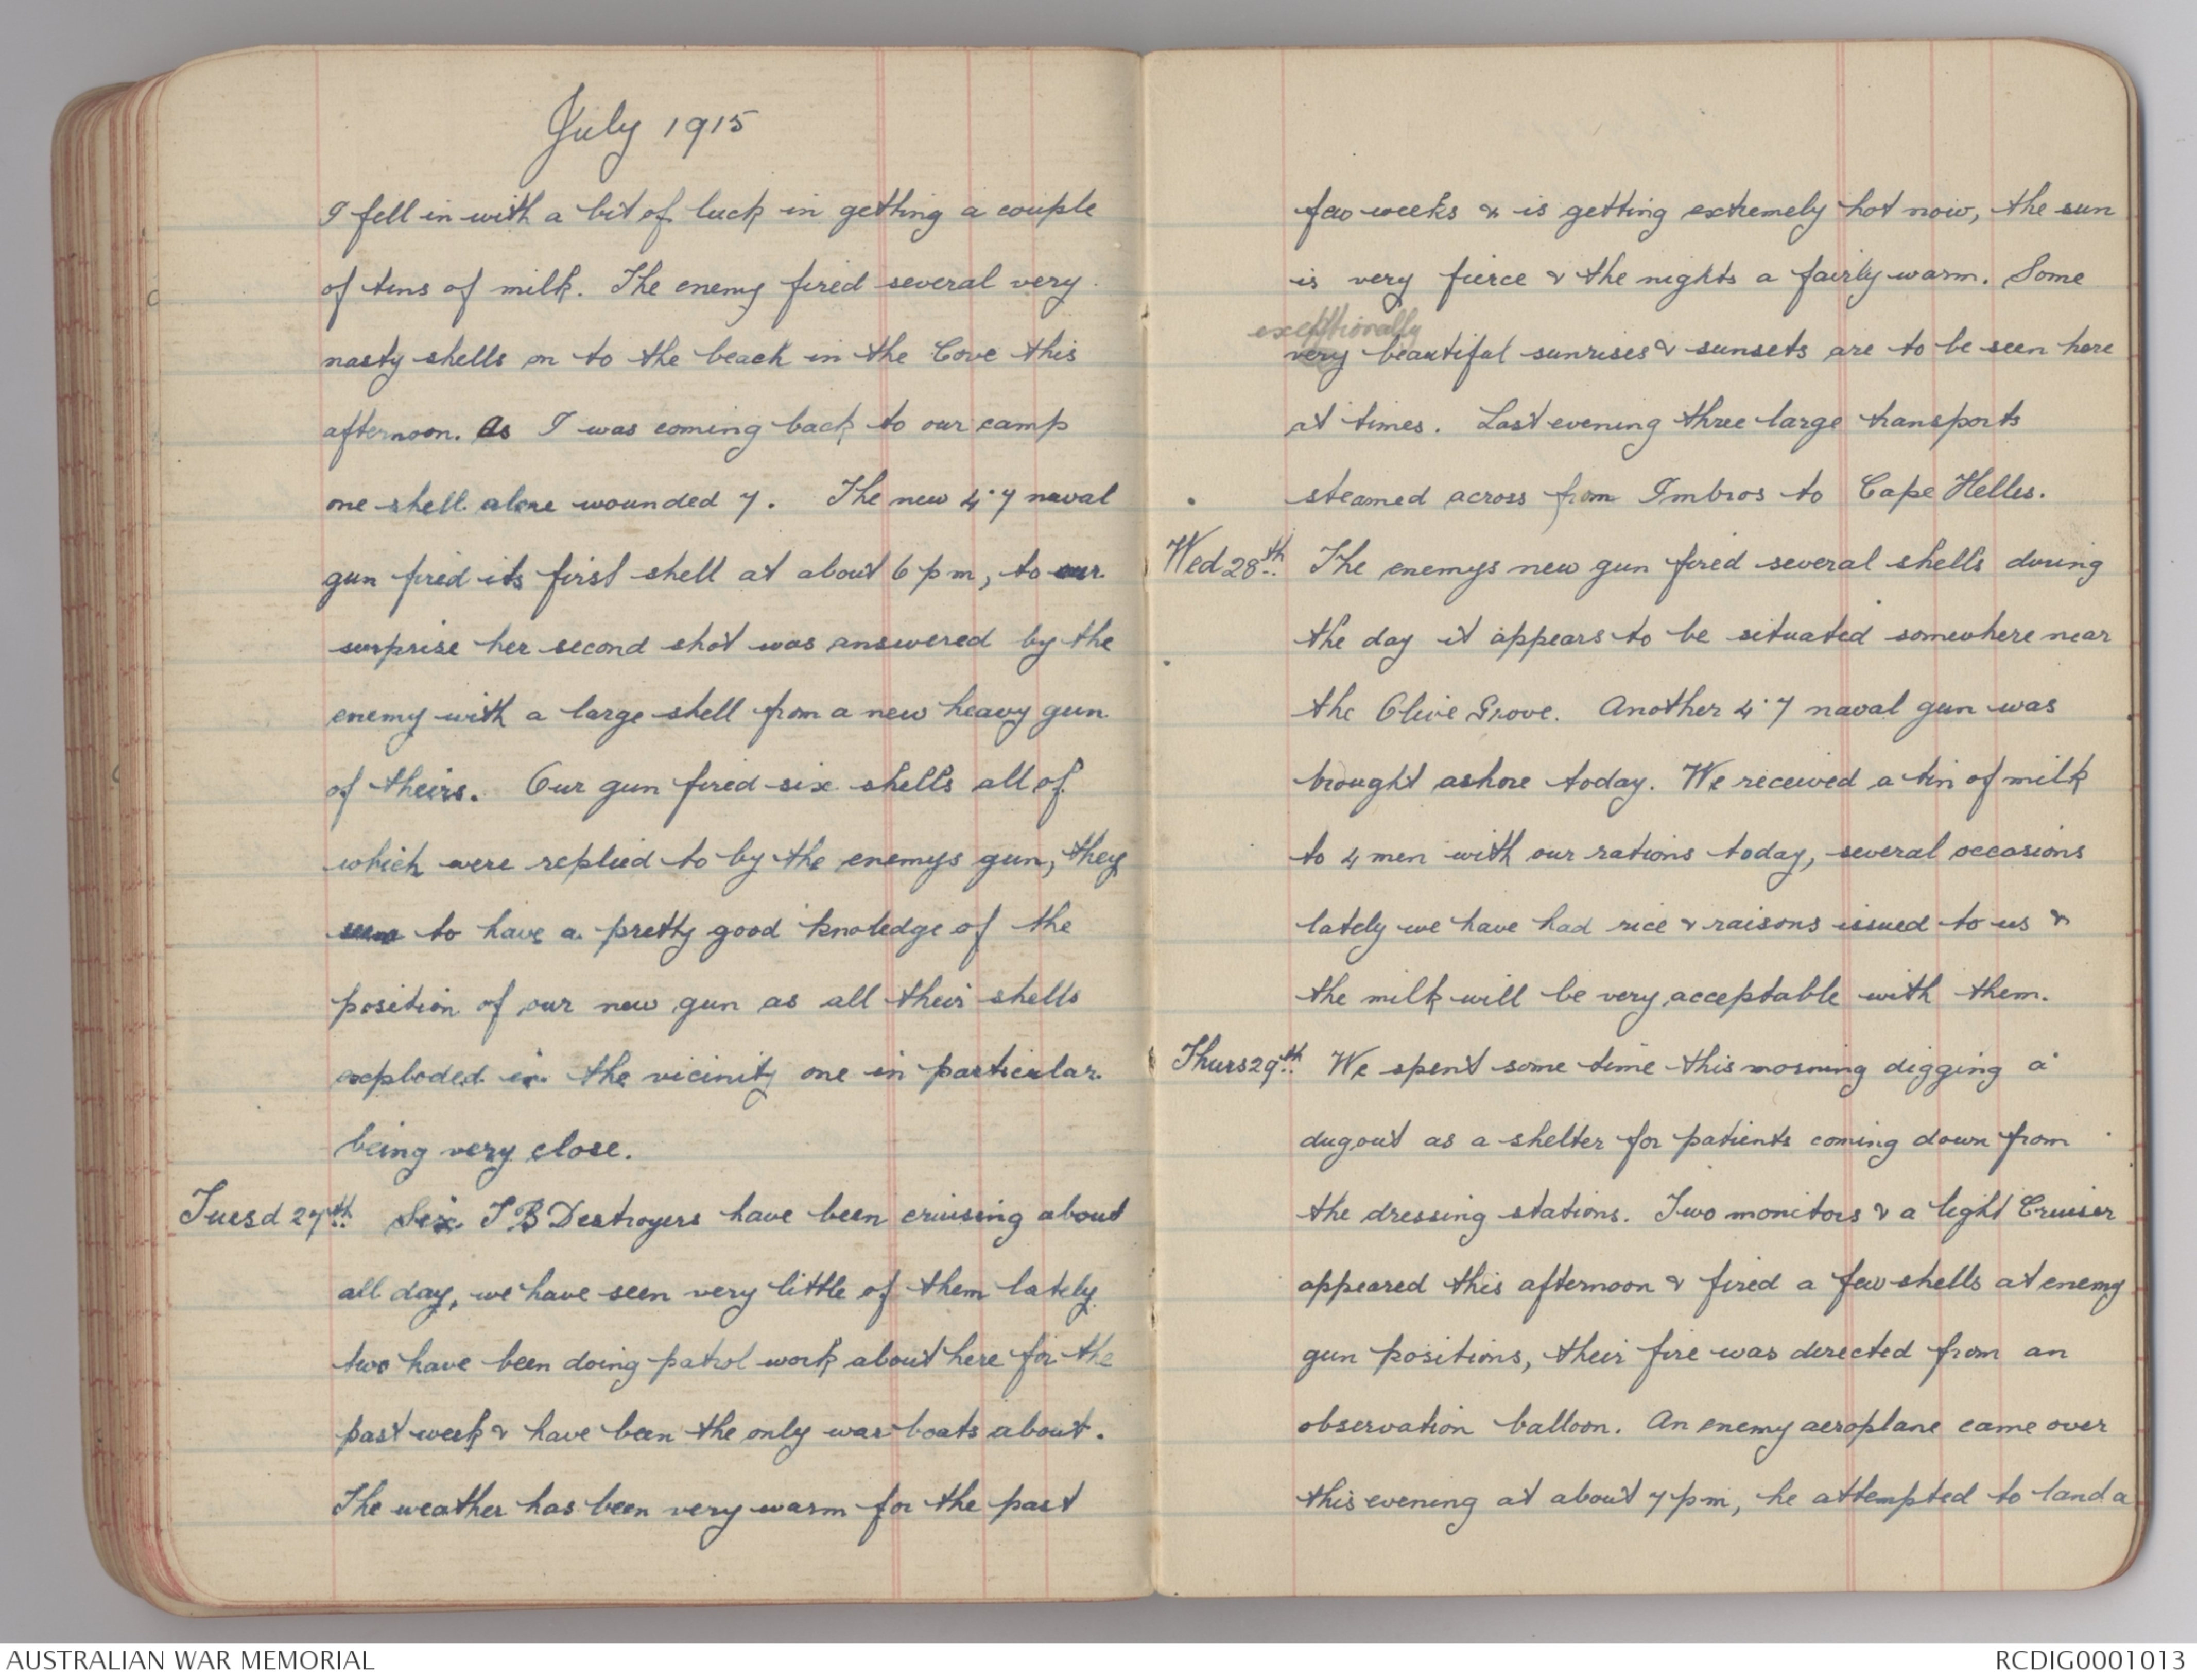 July 1915
I fell in with a bit of luck in getting a couple
of tins of milk. The enemy fired several very
nasty shells on to the beach in the Cove this
afternoon. As I was coming back to our camp
one shell alone wounded 7. The new 4.7 naval
gun fired its first shell at about 6 pm, to our
surprise her second shot was answered by the
enemy with a large shell from a new heavy gun
of theirs. Our gun fired six shells all of
which were replied to by the enemys gun, they
seem to have a pretty good knoledge of the
position of our new gun as all their shells
exploded in the vicinity one in particular
being very close.
Tuesd 27th. Six T B Destroyers have been cruising about
all day, we have seen very little of them lately
two have been doing patrol work about here for the
past week & have been the only war boats about.
The weather has been very warm for the past
few weeks & is getting extremely hot now, the sun
is very fierce & the nights a fairly warm. Some
exceptionally
very beautiful sunrises & sunsets are to be seen here
at times. Last evening three large transports
steamed across from Imbros to Cape Helles.
Wed 28th. The enemys new gun fired several shells during
the day it appears to be situated somewhere near
the Olive Grove. Another 4.7 naval gun was
brought ashore today. We received a tin of milk
to 4 men with our rations today, several occasions
lately we have had rice & raisons issued to us &
the milk will be very acceptable with them.
Thurs 29th. We spent some time this morning digging a
dugout as a shelter for patients coming down from
the dressing stations. Two monitors & a light Cruiser
appeared this afternoon & fired a few shells at enemy
gun positions, their fire was directed from an
observation balloon. An enemy aeroplane came over
this evening at about 7 pm, he attempted to land a
AUSTRALIAN WAR MEMORIAL
RCDIG0001013